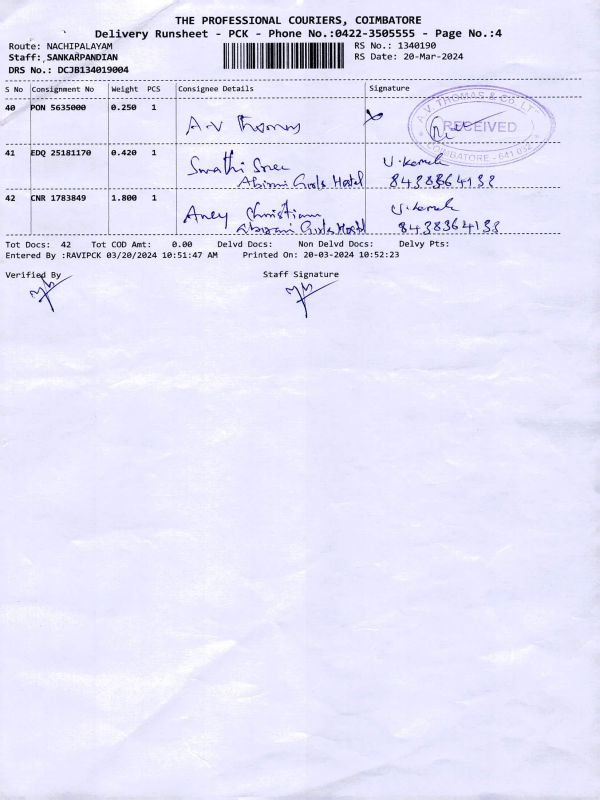 THE PROFESSIONAL COURIERS, COIMBATORE
Delivery Runsheet - PCK - Phone No.:0422-3505555 - Page No.:4
Route: NACHIPALAYAM
RS No.: 1340190
Staff: SANKARPANDIAN
RS Date: 20-Mar-2024
DRS No.: DCJB134019004
S No Consignment No Weight PCS Consignee Details Signature
40 PON 5635000 0.250 1 A.V Thomas
A.V. THOMAS & Co. LT
RECEIVED
COIMBATORE - 641 032
41 EDQ 25181170 0.420 1 Swathi Sree
Abirami Girls Hostel 8438364133
42 CNR 1783849 1.800 1 Christian
Abirami Girls Hostel 8438364133
Tot Docs: 42 Tot COD Amt: 0.00 Delvd Docs: Non Delvd Docs: Delvy Pts:
Entered By :RAVIPCK 03/20/2024 10:51:47 AM Printed On: 20-03-2024 10:52:23
Verified By Staff Signature